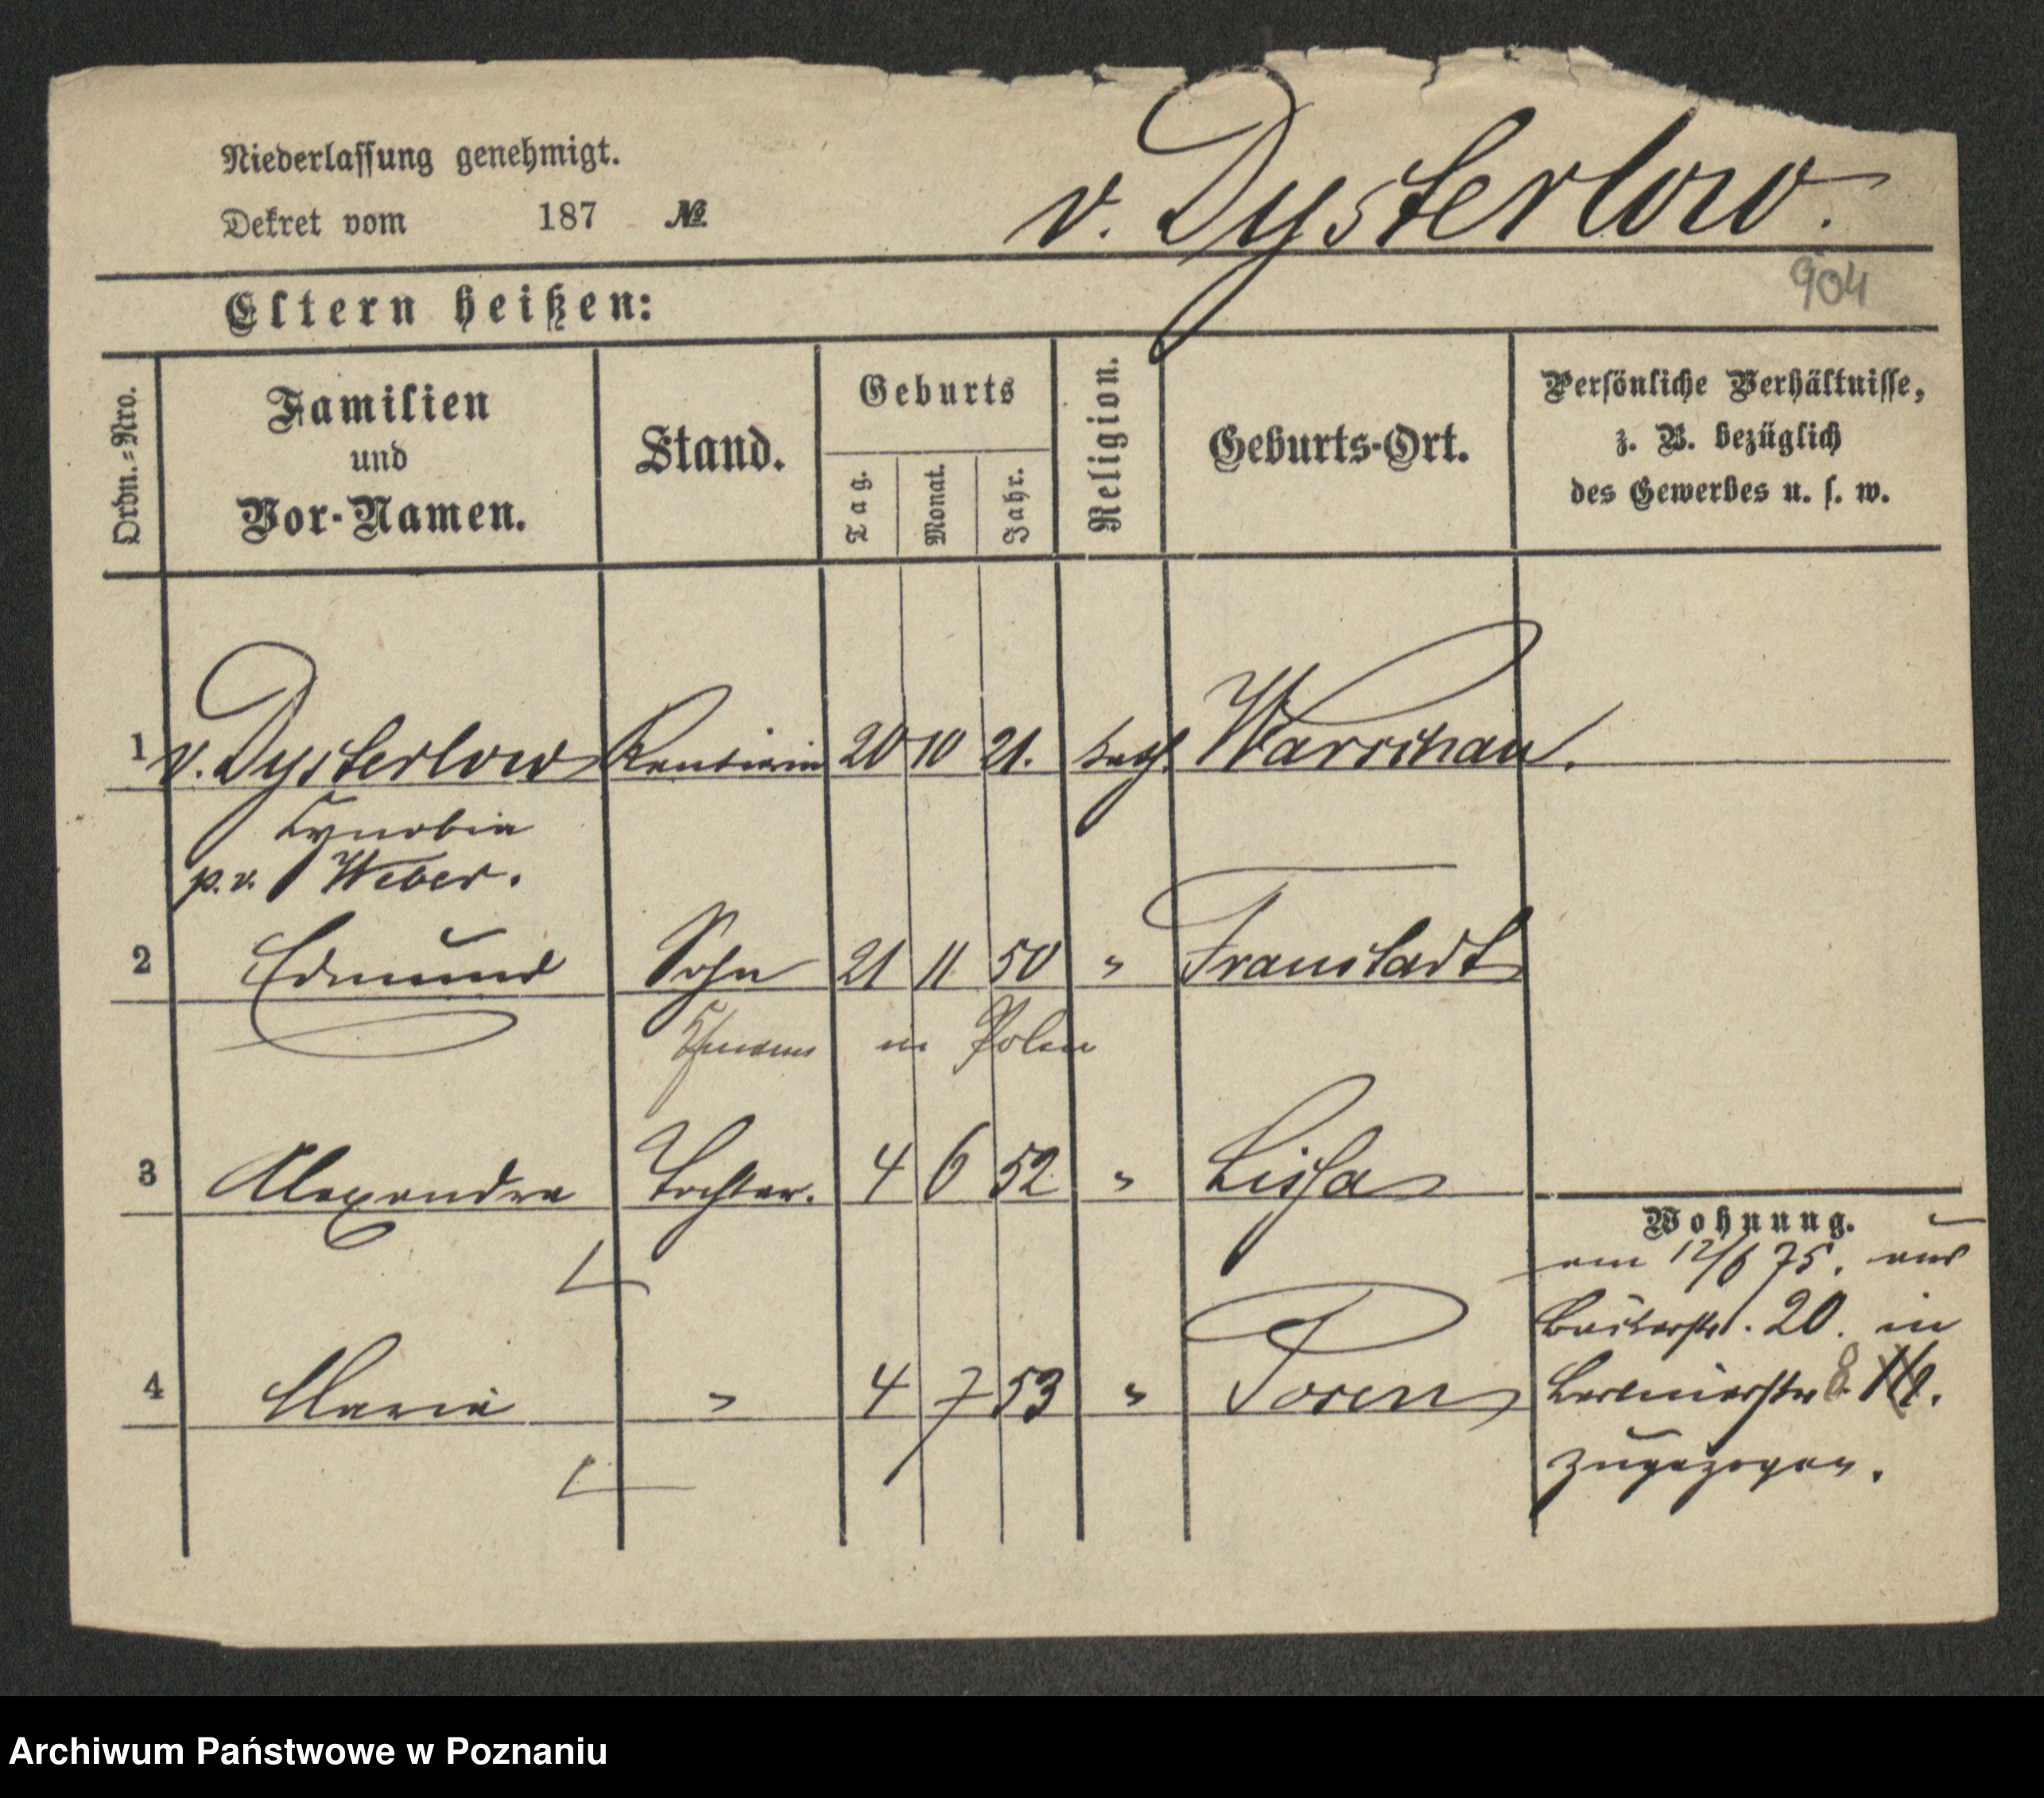 Niederlassung genehmigt.
Dekret vom 187 №
v. Dysterlow.
904
Eltern heißen:
Ordn.=Nro.
Familien
und
Vor-Namen.
Stand.
Geburts
Tag.
Monat.
Jahr.
Religion.
Geburts-Ort.
Persönliche Verhältnisse,
z. B. bezüglich
des Gewerbes u. s. w.
1 v. Dysterlow Rentierin 20 10 21. kath. Warschau.
p. v. Weber.
2 Edmund Sohn 21 11 50 " Fraustadt
in Polen
3 Alexandra Tochter. 4 6 52 " Lissa
Wohnung.
am 12/6 75. aus
Bäckerstr. 20. in
4 Maria " 4 7 53 " Posen
Berlinerstr 8.
zugezogen.
Archiwum Państwowe w Poznaniu